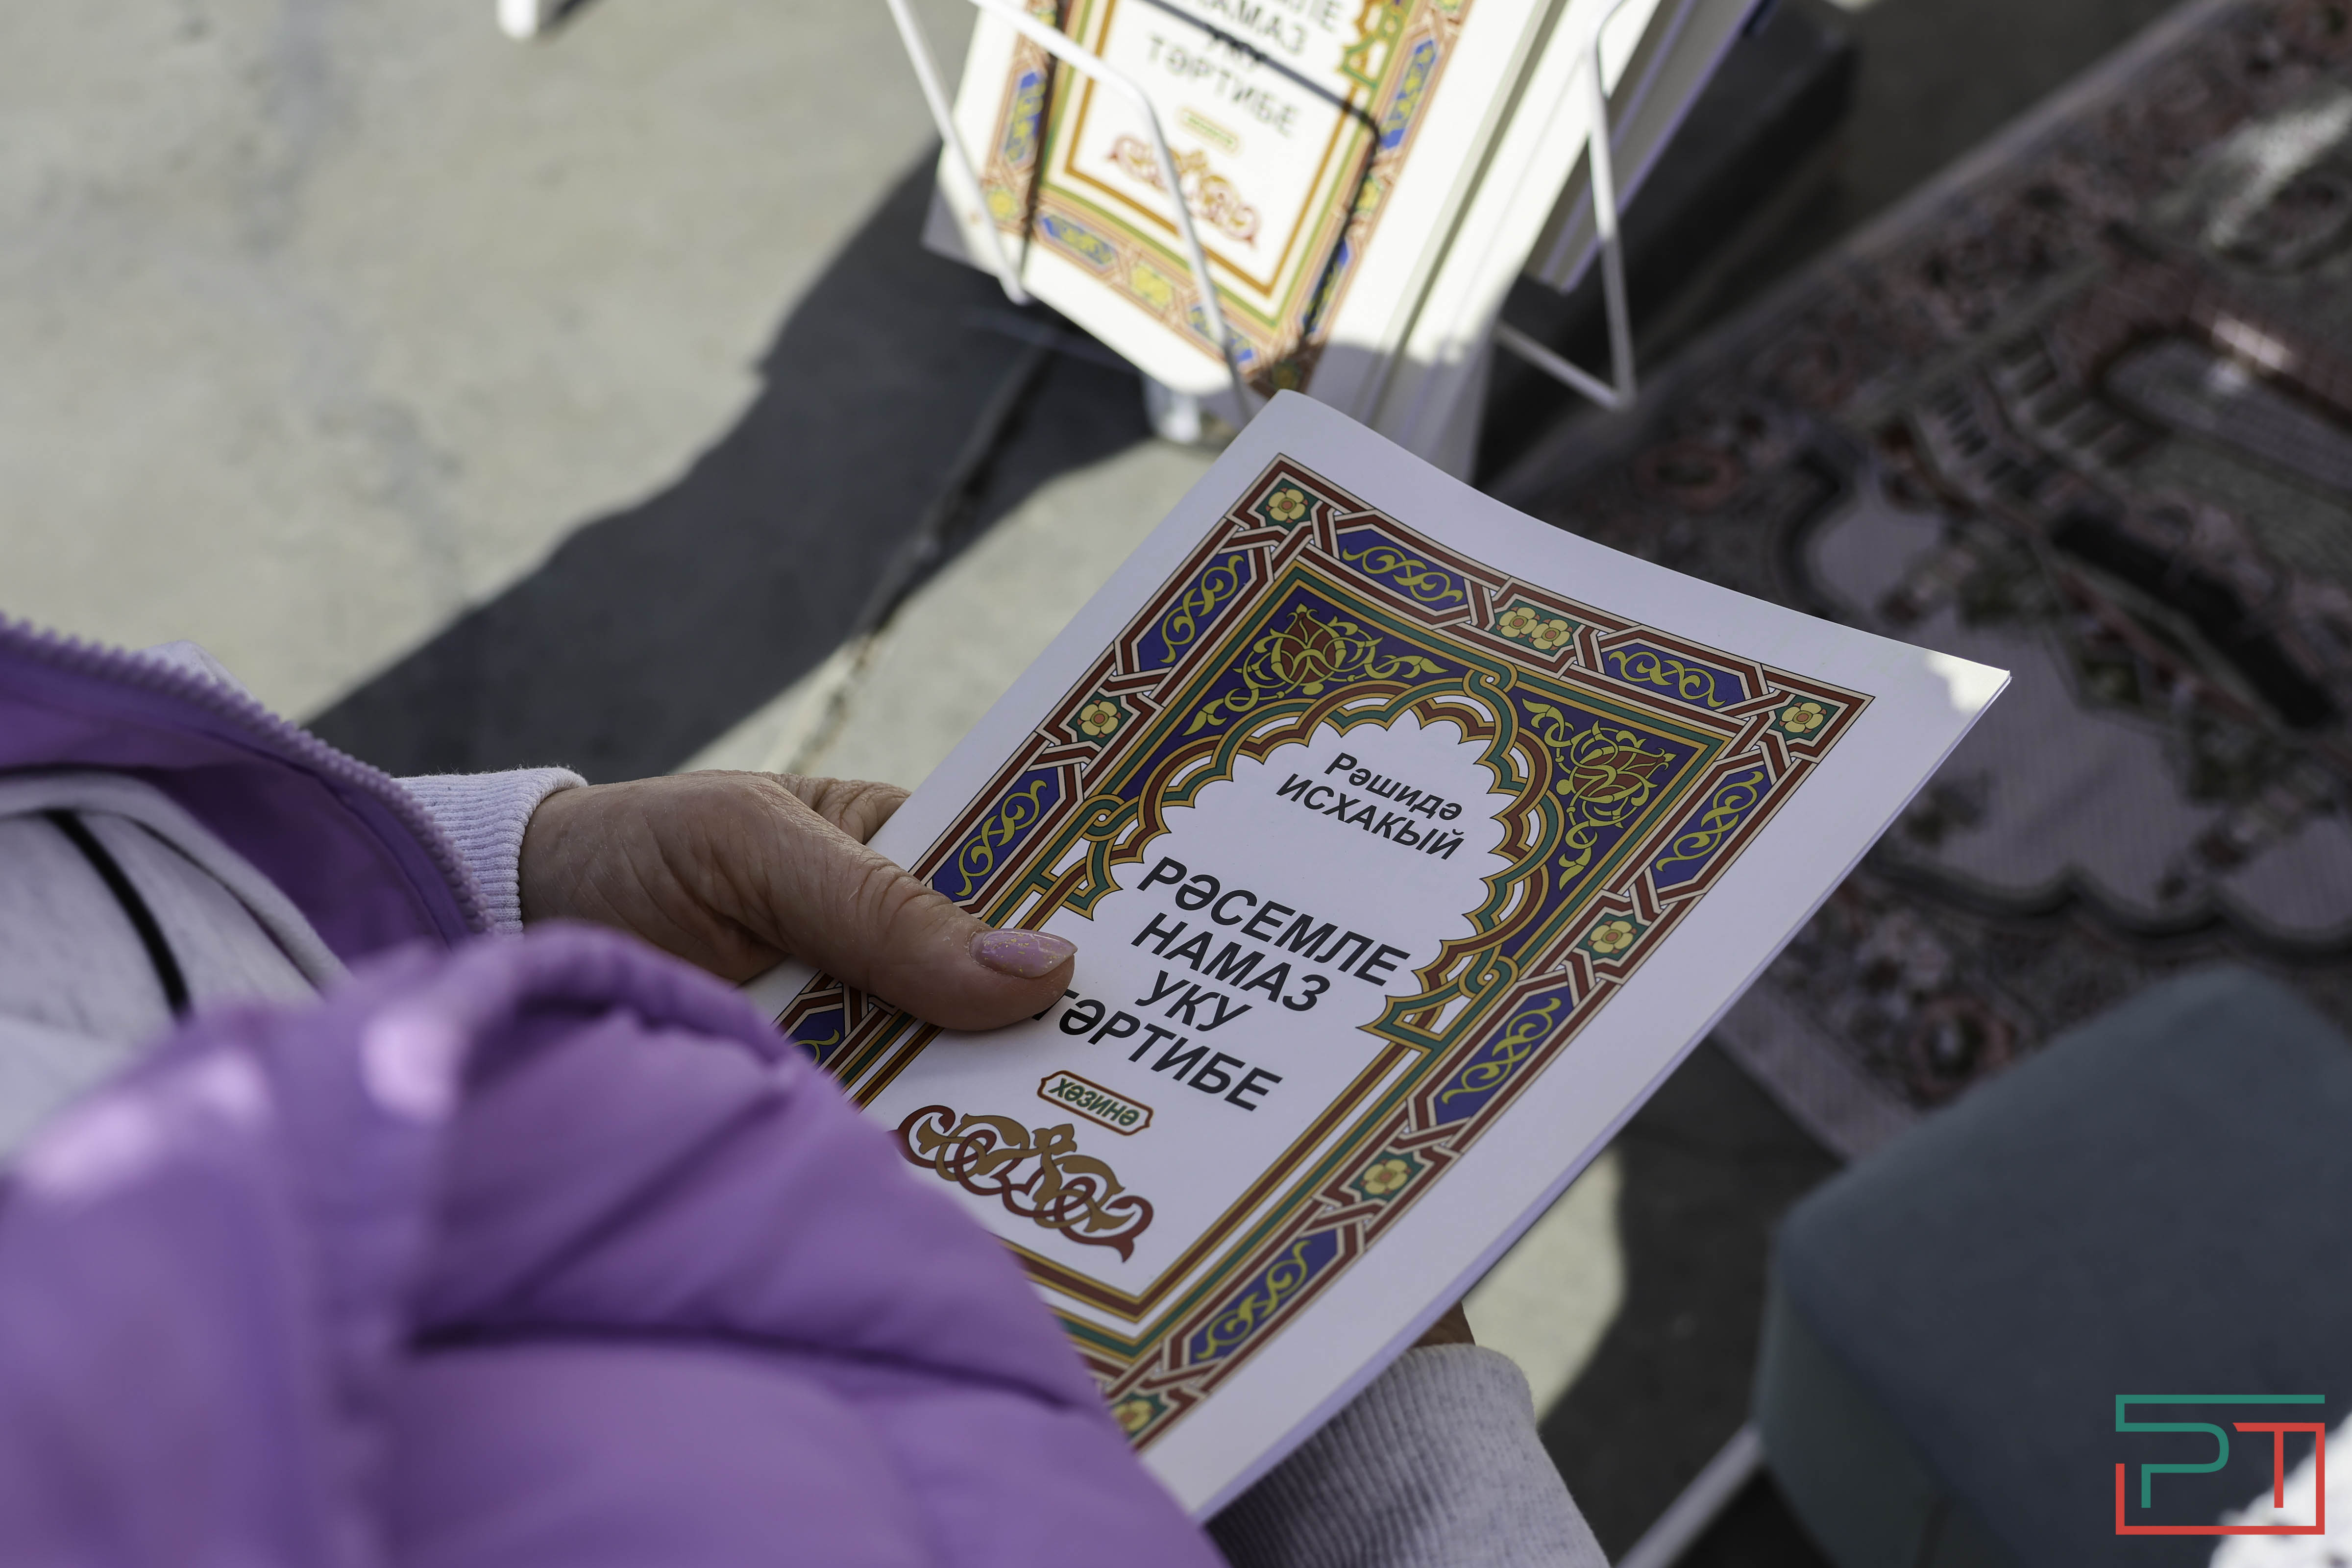 ЛЕ
НАМАЗ
УКУ
ТӘРТИБЕ
Рәшидә
ИСХАКЫЙ
РӘСЕМЛЕ
НАМАЗ
УКУ
ТӘРТИБЕ
ХӘЗИНӘ
РТ